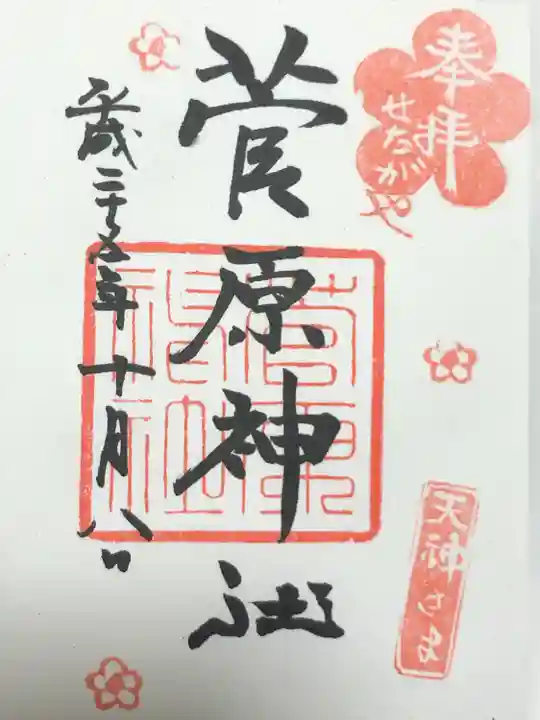 奉拝
せたがや
天神さま
菅原神社
平成二十五年十月八日